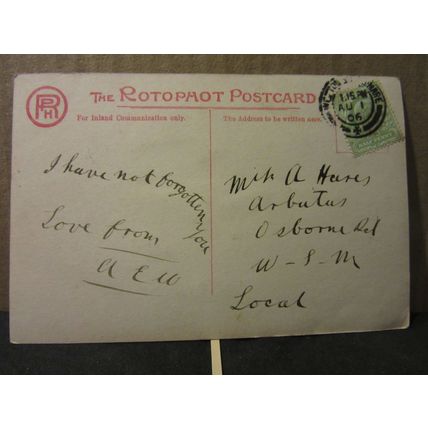 RPH
THE ROTOPHOT POSTCARD
For Inland Communication only.
The Address to be written here.
1.15 PM
AU 1
06
HALF PENNY
I have not forgotten you
Love from
A E W
A
Arbutus
Osborne Rd
W-S-M
Local